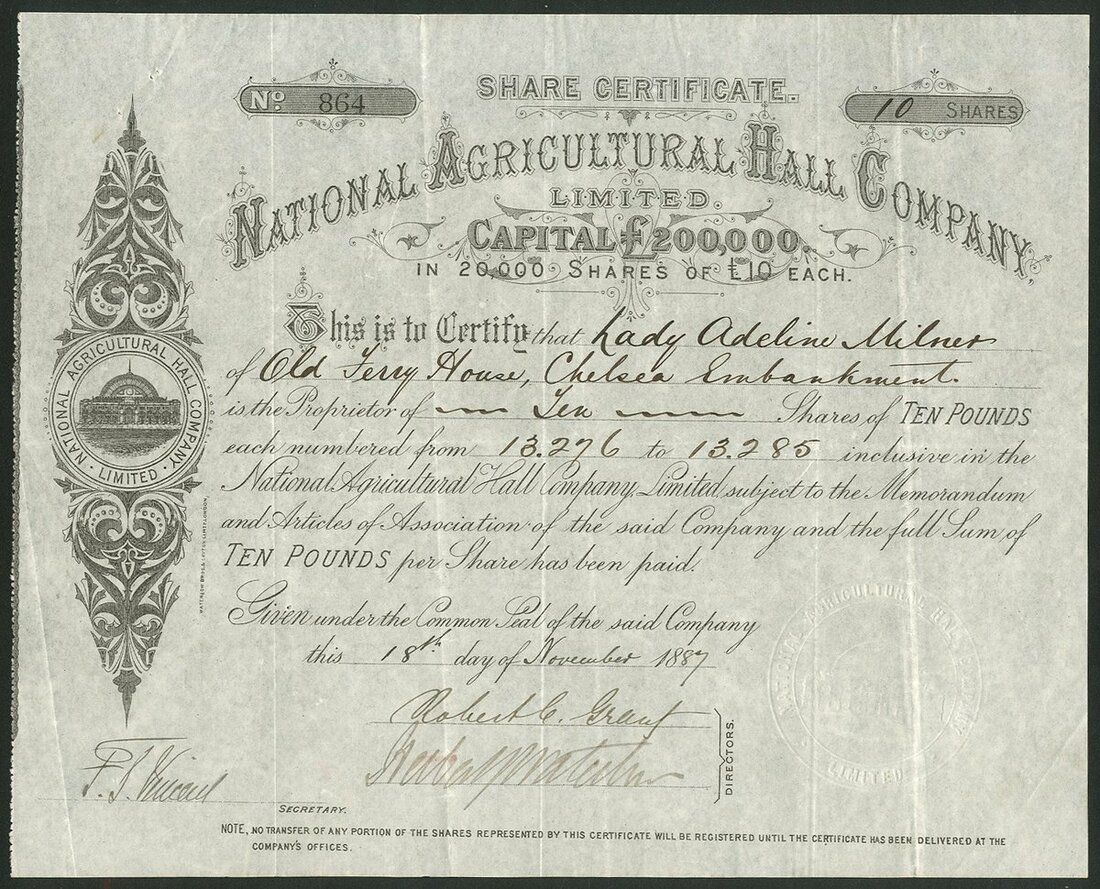 No. 864
SHARE CERTIFICATE.
10 SHARES
NATIONAL AGRICULTURAL HALL COMPANY,
LIMITED.
CAPITAL £200,000,
IN 20,000 SHARES OF £10 EACH.
This is to Certify that Lady Adeline Milner
of Old Ferry House, Chelsea Embankment.
is the Proprietor of Ten Shares of TEN POUNDS
each numbered from 13.276 to 13.285 inclusive in the
National Agricultural Hall Company, Limited, subject to the Memorandum
and Articles of Association of the said Company and the full Sum of
TEN POUNDS per Share has been paid.
Given under the Common Seal of the said Company
this 18th day of November 1887
Robert C. Grant
DIRECTORS.
SECRETARY.
NOTE, NO TRANSFER OF ANY PORTION OF THE SHARES REPRESENTED BY THIS CERTIFICATE WILL BE REGISTERED UNTIL THE CERTIFICATE HAS BEEN DELIVERED AT THE
COMPANY'S OFFICES.
NATIONAL AGRICULTURAL HALL COMPANY
· LIMITED ·
NATIONAL AGRICULTURAL HALL COMPANY
LIMITED